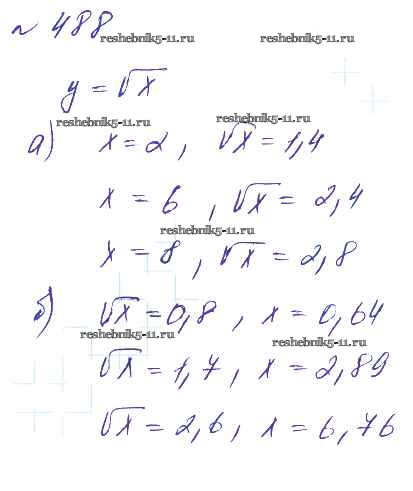 № 488
reshebnik5-11.ru reshebnik5-11.ru
y = √x
reshebnik5-11.ru reshebnik5-11.ru
а) x = 2, √x = 1,4
x = 6, √x = 2,4
reshebnik5-11.ru
x = 8, √x = 2,8
б) √x = 0,8, x = 0,64
reshebnik5-11.ru reshebnik5-11.ru
√x = 1,7, x = 2,89
√x = 2,6, x = 6,76